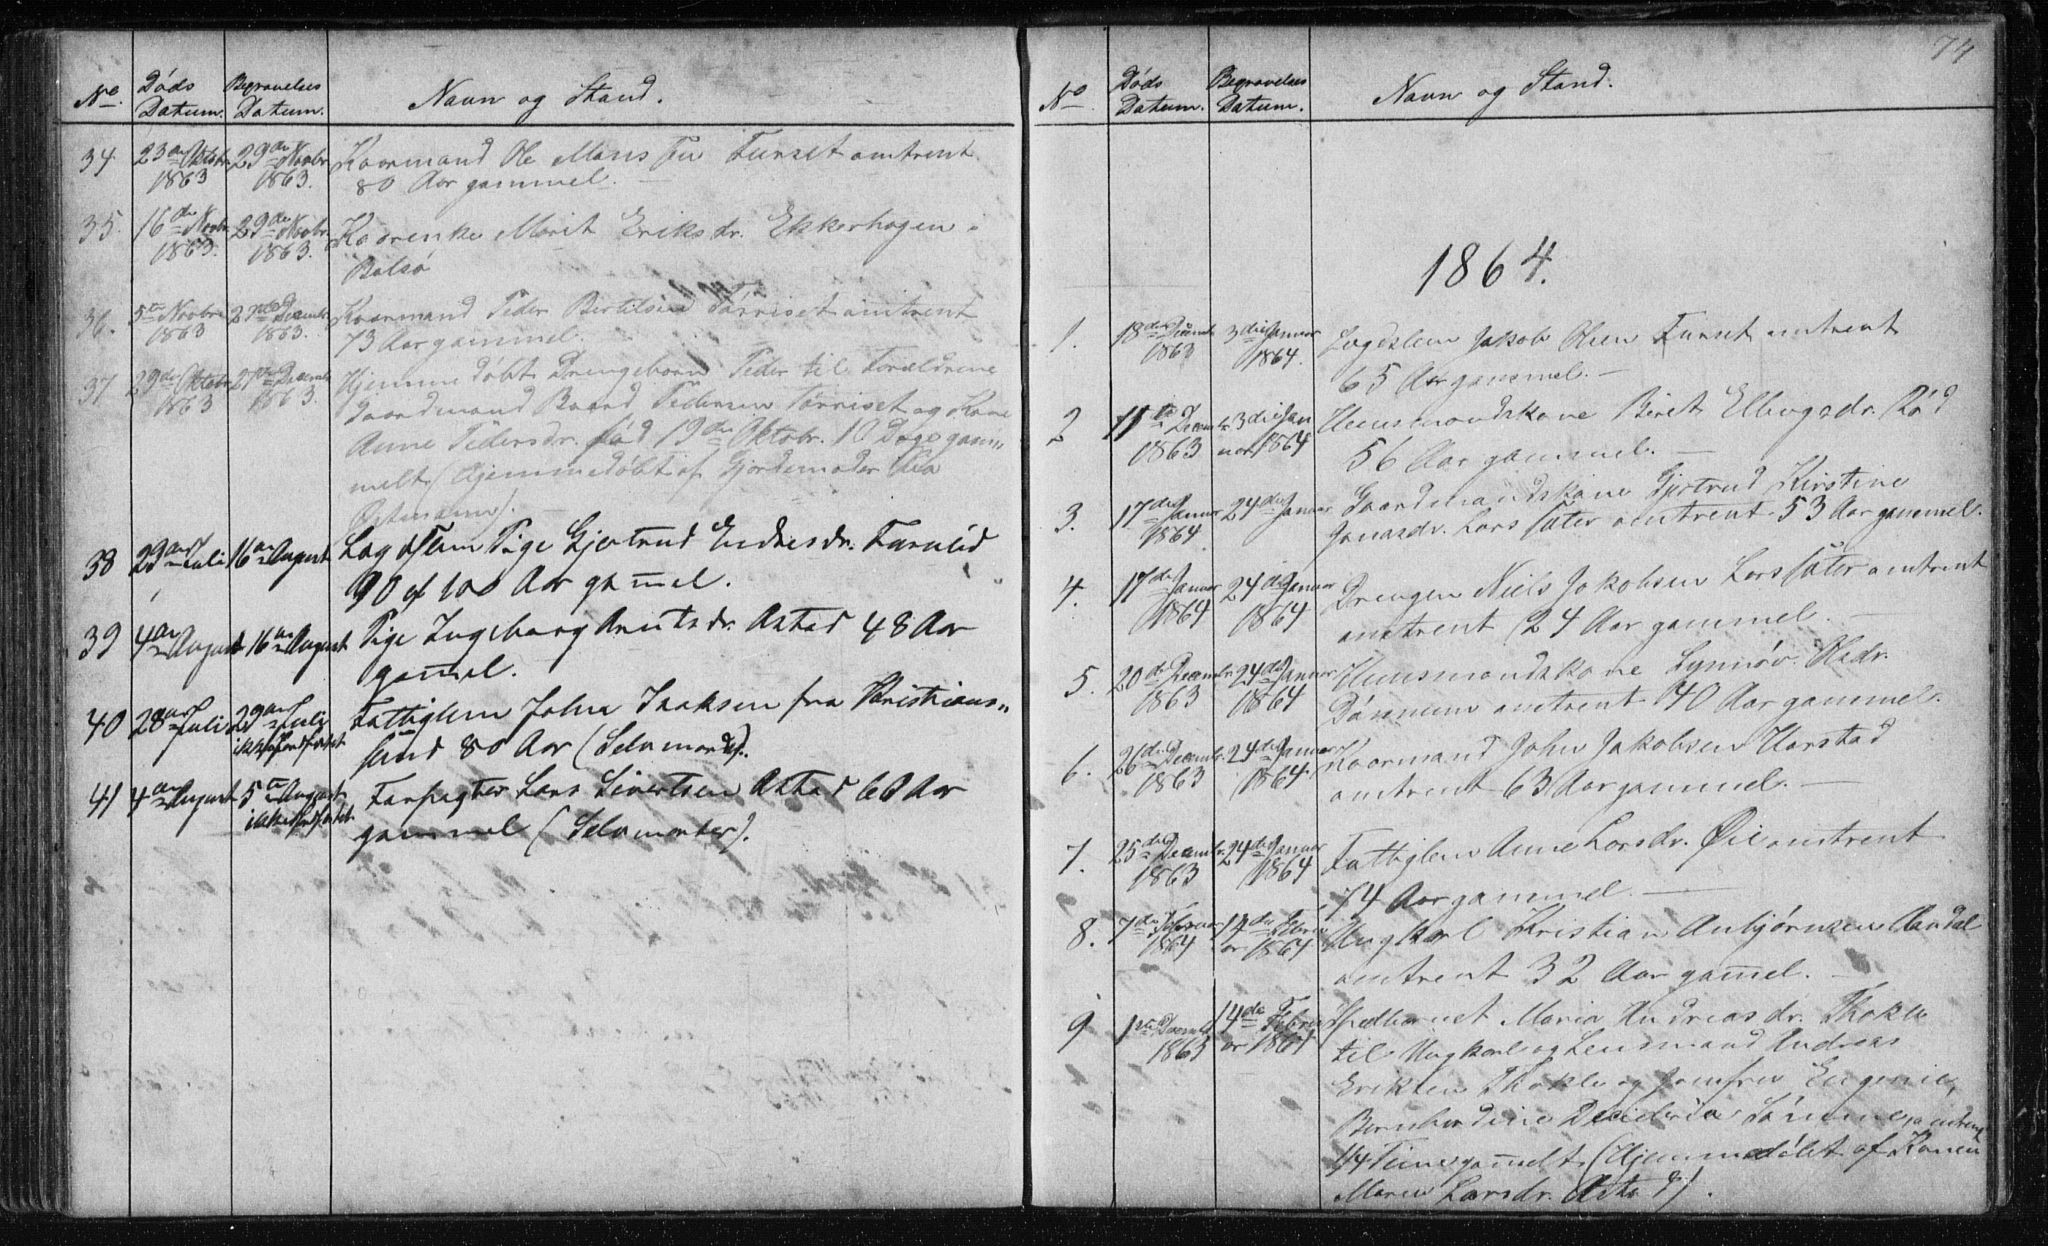 No. Døds Datum. Begravelses Datum. Navn og Stand.
34. 23de Oktobr 1863 29de Novbr 1863. Kaarmand Ole Mons Tunset omtrent
80 Aar gammel. —
35. 16de Novbr. 1863. 29de Novbr. 1863. Kaarenke Marit Eriksdr. Ekkerhagen i
Bolsø
36. 5te Novbr 1863 27de Decembr 1863. Kaarmand Peder Bertilsen Tørriset omtrent
73 Aar gammel.
37 29de Oktobr 1863 27de Decembr 1863. Hjemmedøbt Drengebarn Peder til Forældrene
Gaardmand Baard Pedersen Tørriset og Kone
Anne Pedersdr. fød 19de Oktobr. 10 Dage gam„
melt (Hjemmedøbt af Gjordemoder
).
38 29de Juli 16de August Lægdslem Pige Gjertrud Endresdr. Farstad
90 à 100 Aar gamel.
39 4de August 16de August Pige Ingeborg Knutsdr. Astad 48 Aar
gamel.
40 28de Juli 29de Juli ikke jordfæstet Fattiglem John Isaksen fra Kristians„
sund 80 Aar (Selvmorder).
41 4de August 5te August ikke jordfæstet Forpagter Lars Sivertsen Astad 60 Aar
gammel (Selvmorder).
74
No Døds Datum. Begravelses Datum. Navn og Stand.
1864.
1. 18de Decembr 1863 3die Januar 1864. Lægdslem Jakob Olsen Tunset omtrent
65 Aar gammel. —
2 11te Decembr. 1863 3die Januar 1864 Huusmandskone Beret Ellingsdr. Rød
56 Aar gammel. —
3. 17de Januar 1864. 24de Januar Gaardmandskone Gjertrud Kirstine
Jonasdr. Larssæter omtrent 53 Aar gammel.
4. 17de Januar 1864 24de Januar 1864 Drengen Niels Jakobsen Larssæter omtrent
omtrent 24 Aar gammel. —
5. 20de Decembr. 1863 24de Januar 1864 Huusmandskone Synnøv Olsdr.
omtrent 40 Aar gammel.
6. 26de Decembr. 1863 24de Januar 1864. Kaarmand John Jakobsen Harstad
omtrent 63 Aar gammel. —
7. 25de Decembr. 1863 24de Januar 1864 Fattiglem Anne Larsdr. Øie omtrent
74 Aar gammel. —
8. 7de Februar 1864 14de Februar 1864 Ungkarl Kristian Anbjørnsen Aandal
omtrent 32 Aar gamel. —
9 1ste Decembr 1863 14de Februar 1864 Spedbarnet Maria Andreasdr. Thokle
til Ungkarl og Lensmand Andreas
Eriksen Thokle og Jomfru Eugenie
Bernhardine Desideria omtrent
1/4 Time gamelt (Hjemmedøbt af Konen
Maren Larsdr. Astad).